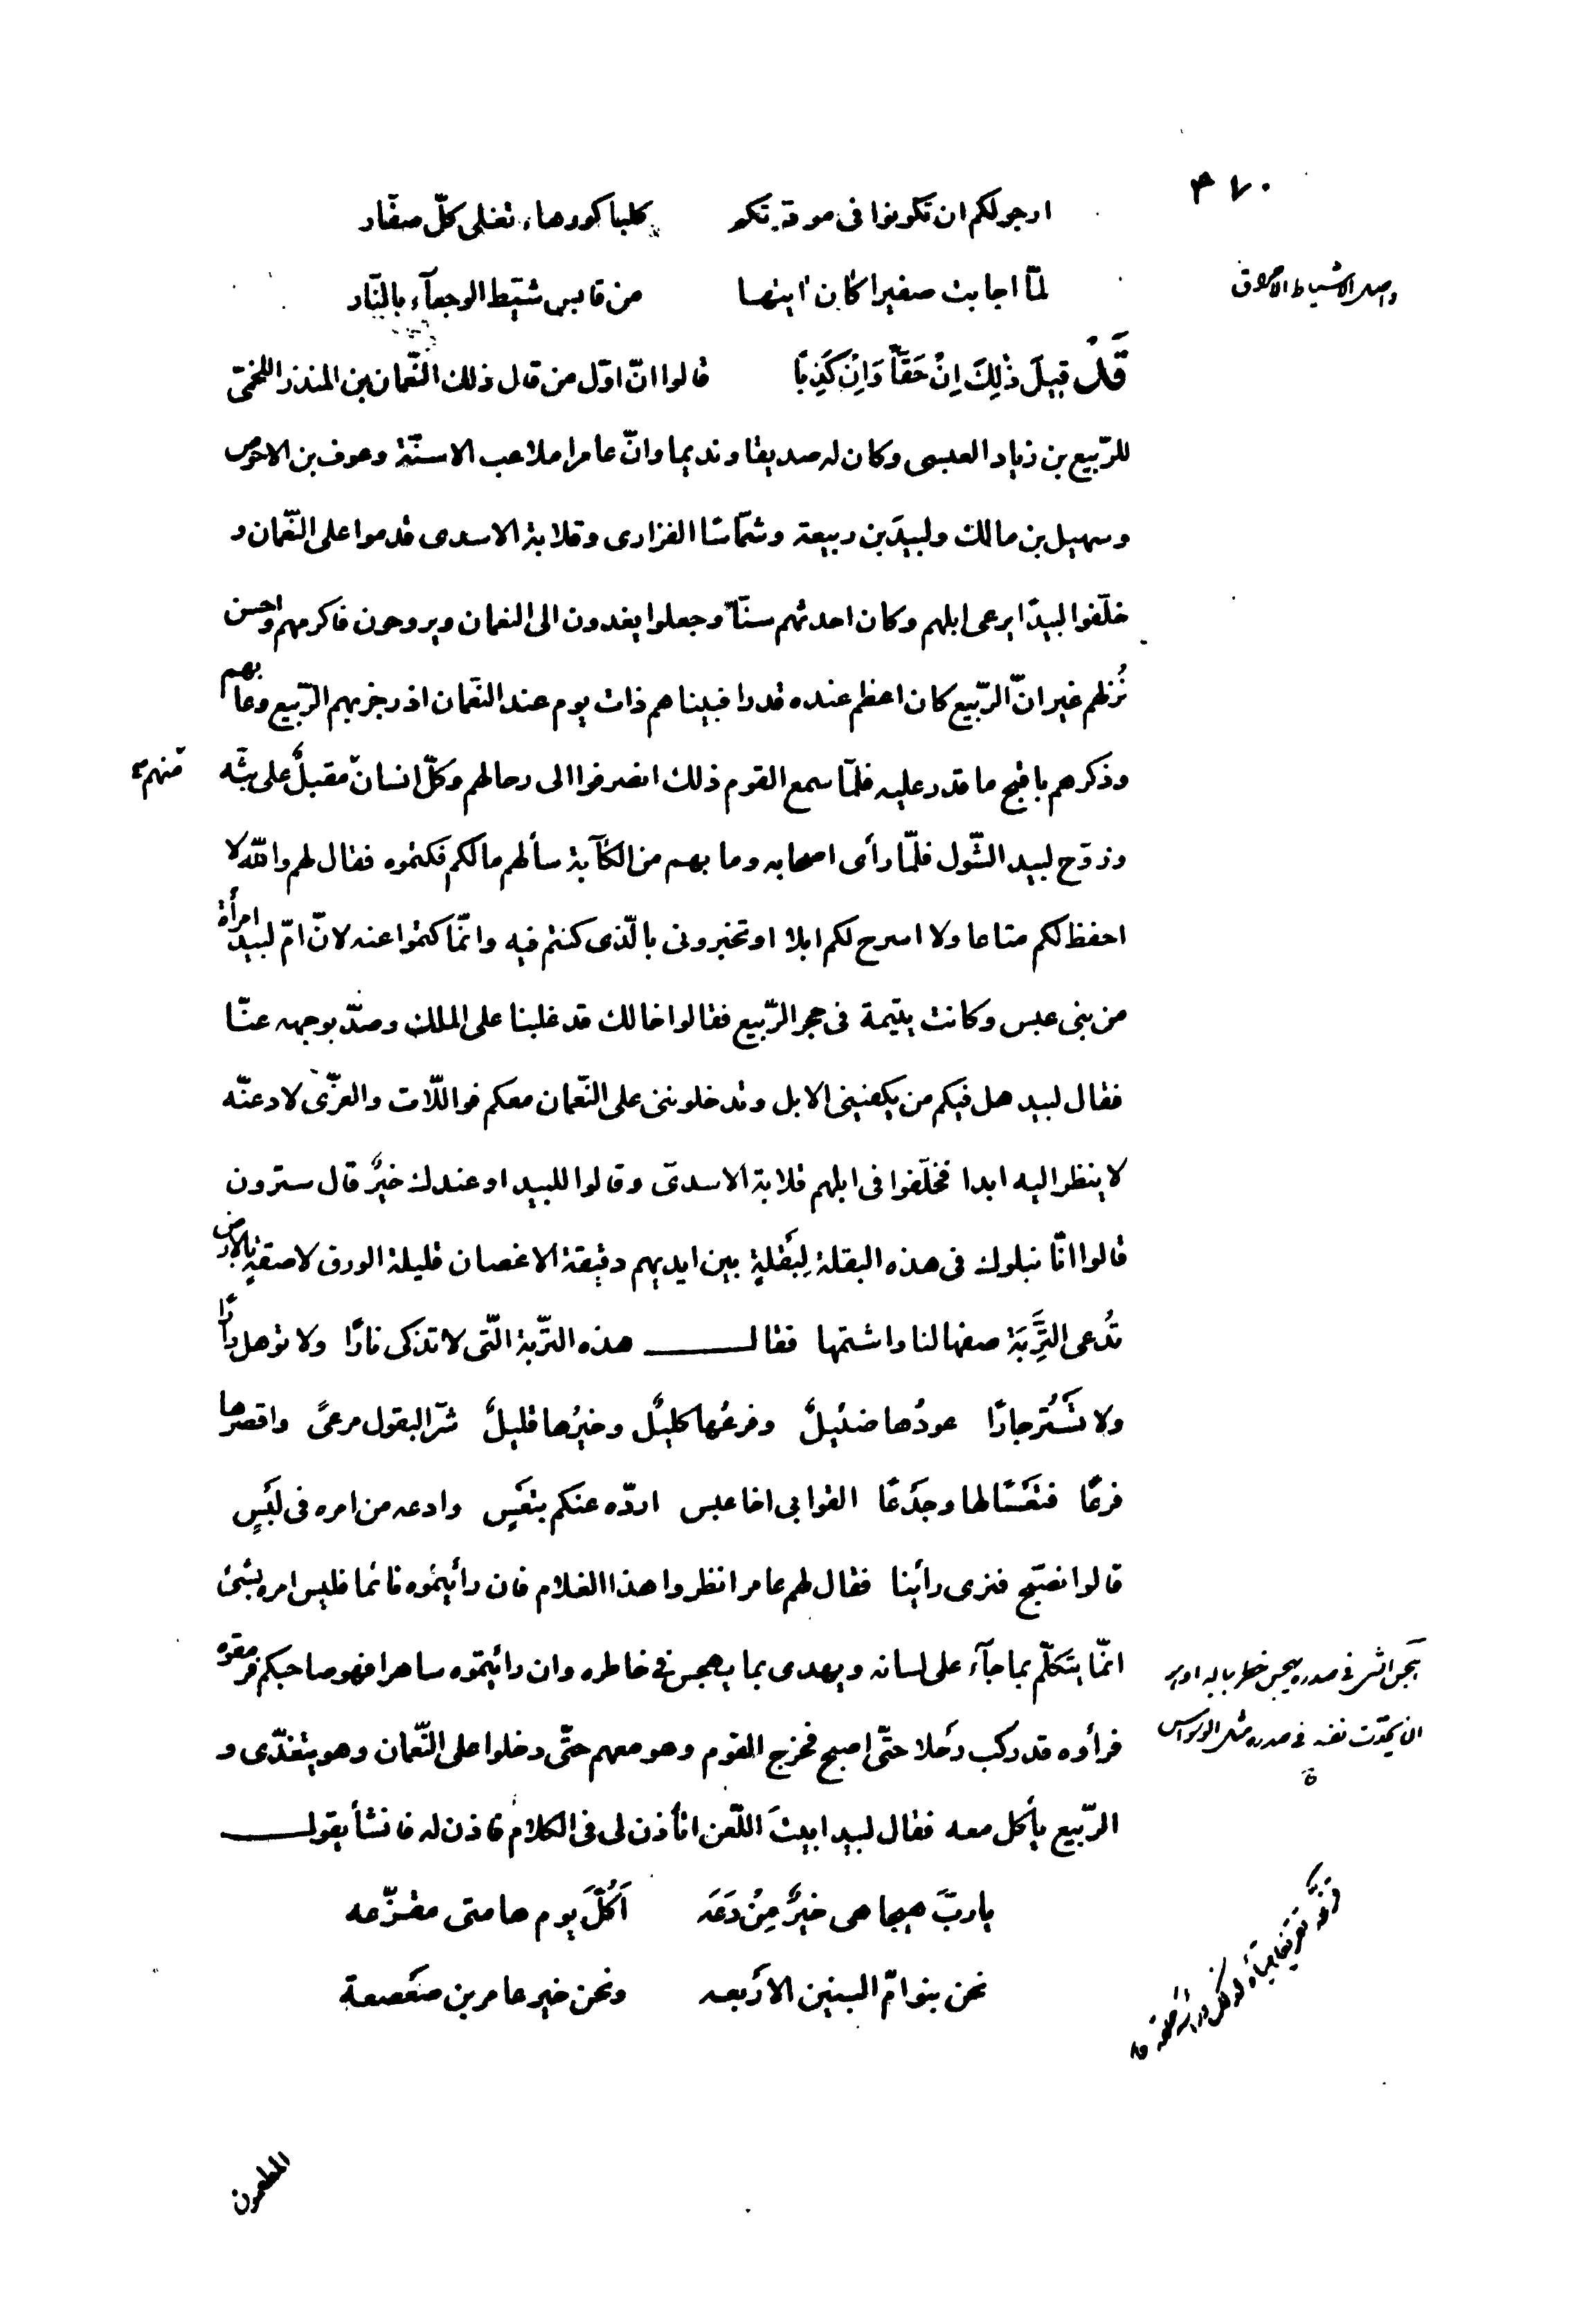 ٣٧٠
ارجو لكم ان تكونوا فى مودّتكم كلبا كورهاء تغلى كلّ صفّار
لمّا اجابت صفيرا كان اتيها من قابس شيّط الوجعآء بالنّار
واصل الاشياط الاحراق
قَدْ قِيلَ ذٰلِكَ اِنْ حَقّاً وَاِنْ كَذِبًا قالوا انّ اوّل من قال ذلك النّعمان بن المنذر اللخمىّ
للرّبيع بن زياد العبسى وكان له صديقا ونديما وانّ عامرا ملاعب الاسنّة وعوف بن الاحوص
وسهيل بن مالك ولبيدَ بن ربيعة وشمّاسًا الفزارى وقلابة الاسدى قدموا على النّعمان و
خلّفوا لبيدًا يرعى ابلهم وكان احدثهم سنّاً وجعلوا يغدون الى النعمان ويروحون فاكرمهم واحسن
نُزلهم غير انّ الرّبيع كان اعظم عنده قدرا فبيناهم ذات يوم عند النعّمان اذ رجز بهم الرّبيع وعابهم
وذكرهم باقبح ما قدر عليه فلمّا سمع القوم ذلك انصرفوا الى رحالهم وكلّ انسان مقبلٌ على بثّه
منهم
وروّح لبيد الشّول فلمّا رأى اصحابه وما بهم من الكآبة سألهم مالكم فكتموه فقال لهم والله لا
احفظ لكم متاعا ولا اسرح لكم ابلا او تخبرونى بالّذى كنتم فيه وانّما كتموا عنه لانّ امّ لبيد امرأة
من بنى عبس وكانت يتيمة فى حجر الرّبيع فقالوا خالك قد غلبنا على الملك وصدّ بوجهه عنّا
فقال لبيد هل فيكم من يكفينى الابل وتدخلوننى على النّعمان معكم فواللّات والعزّى لادعنّه
لا ينظر اليه ابدا فخلّفوا فى ابلهم قلابة الاسدىّ وقالوا للبيد اوعندك خيرٌ قال سترون
قالوا انّا نبلوك فى هذه البقلة لِبَقْلةٍ بين ايديهم دقيقة الاغصان قليلة الورق لاصقةٍ بالارض
تُدعى التَّرِبَة صفها لنا واشتمها فقال هذه التّربة الّتى لا تذكى نارًا ولا توهل دارًا
ولا تَسْتُر جارًا عودُها ضئيلٌ وفرعُها كليلٌ وخيرُها قليلٌ شرّ البقول مرعىً واقصرها
فرعًا فتَعْسًا لها وجَدْعًا القوا بى اخا عبس اردّه عنكم بتعَسٍ وادعه من امره فى لبَسٍ
قالوا نصبّح فنرى رأينا فقال لهم عامر انظروا هذا الغلام فان رأيتموه نائما فليس امره بشئ
انّما يتكلّم بما جآء على لسانه ويهدى بما يهجس فى خاطره وان رائيتموه ساهرا فهو صاحبكم فرمقوه
هجس الشئ فى صدره يهجس خطر بباله او هو
ان يحدّث نفسه فى صدره مثل الوسواس
ق
فرأوه قد ركب رَحْلا حتّى اصبح فخرج القوم وهو معهم حتّى دخلوا على النّعمان وهو يتغدّى و
الرّبيع يأكل معه فقال لبيد ابيتَ اللّعن اتأذن لى فى الكلام فاذن له فانشأ يقول
يا ربّ هيجا هى خيرٌ مِنْ دَعَه اَكُلّ يوم هامتى مقزّعه
نحن بنو امّ البنين الارْبعه ونحن خير عامر بن صعْصعة
المطعمون